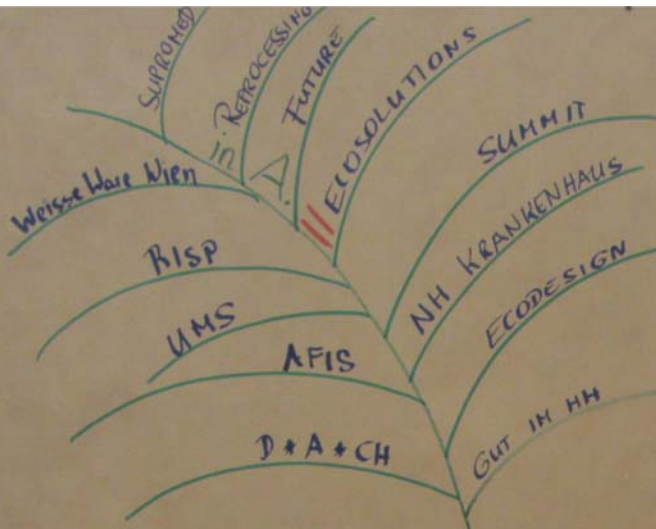 SUPROMED
REPROCESSING
FUTURE
ECOSOLUTIONS
SUMMIT
NH KRANKENHAUS
ECODESIGN
GUT IN HH
Weisse Ware Wien
RISP
UMS
AFIS
D * A * CH